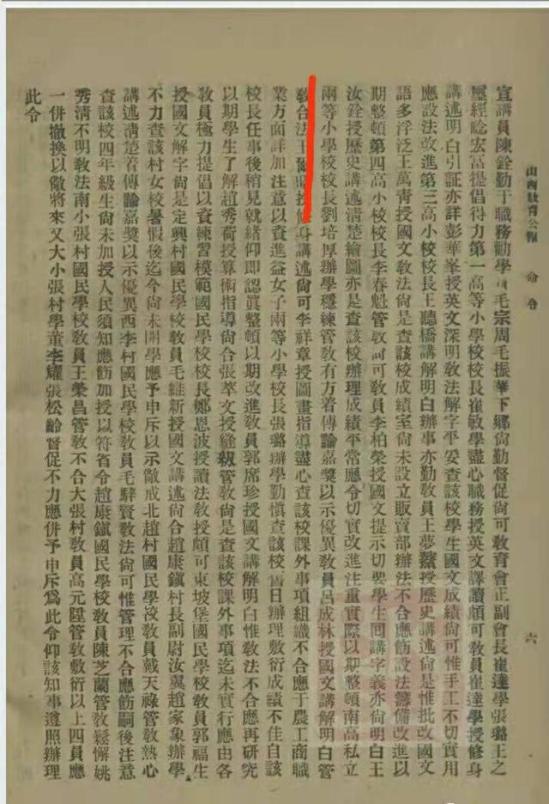 山西教育公報　命令　六
宣講員陳銓勤于職務勸學員毛宗周毛振華下鄉尙勤督促尙可教育會正副會長崔達學張璐王之
璽經諗宏富提倡得力第一高等小學校校長崔敏學盡心職務授英文譯讀頗可教員崔達學授修身
講述明白引証亦詳彭華峯授英文深明敎法解字平妥查該校學生國文成績尙可惟手工不切實用
應設法改進第三高小校校長王聽橋講解明白辦事亦勤敎員王夢麟授歷史講述尙是惟批改國文
語多浮泛王萬靑授國文敎法尙是查該校成績室尙未設立販賣部辦法不合應飭設法籌備改進以
期整頓第四高小校校長李春魁管敎尙可敎員李柏榮授國文提示切要學生回講字義亦尙明白王
汝銓授歷史講述淸楚繪圖亦是查該校辦理成績平常應令切實改進注重實際以期整頓南高私立
兩等小學校校長劉培厚辦學穩練管敎有方着傳諭嘉獎以示優異敎員呂成林授國文講解明白管
敎合法王爾 授修身講述尙可李祥章授圖畫指導盡心查該校課外事項組織不合應于農工商職
業方面詳加注意以資進益女子兩等小學校校長張璐辦學勤愼查該校舊日辦理敷衍成績不佳自該
校長任事後稍見就緒仰即認眞整頓以期改進敎員郭席珍授國文講解明白惟敎法不合應再硏究
以期學生了解趙秀荷授算術指導尙合張萃文授縫級管敎尙是查該校課外事項迄未實行應由各
敎員極力提倡以資練習模範國民學校校長鄭恩波授讀法敎授頗可東坡堡國民學校敎員郭福生
授國文解字尙是定興村國民學校敎員毛維新授國文講述尙合趙康鎭村長副尉汝冀趙家象辦學
不力查該村女校暑假後迄今尙未開學應予申斥以示儆戒北趙村國民學校敎員戴天祿管敎熱心
講述淸楚着傳諭嘉獎以示優異西李村國民學校敎員毛騂賢敎法尙可惟管理不合應飭嗣後注意
查該校四年級生尙未加授人民須知應飭加授以符省令趙康鎭國民學校敎員陳芝蘭管敎鬆懈姚
秀淸不明敎法南小張村國民學校敎員王榮昌管敎不合大張村敎員高元陞管敎敷衍以上四員應
一併撤換以儆將來又大小張村學董李耀張松齡督促不力應併予申斥爲此令仰該知事遵照辦理
此令